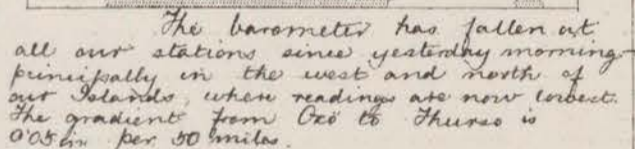 The barometer has fallen at
all our stations since yesterday morning-
principally in the west and north of
our Islands, where readings are now lowest.
The gradient from Oxö to Thurso is
0.05 in per 50 miles.